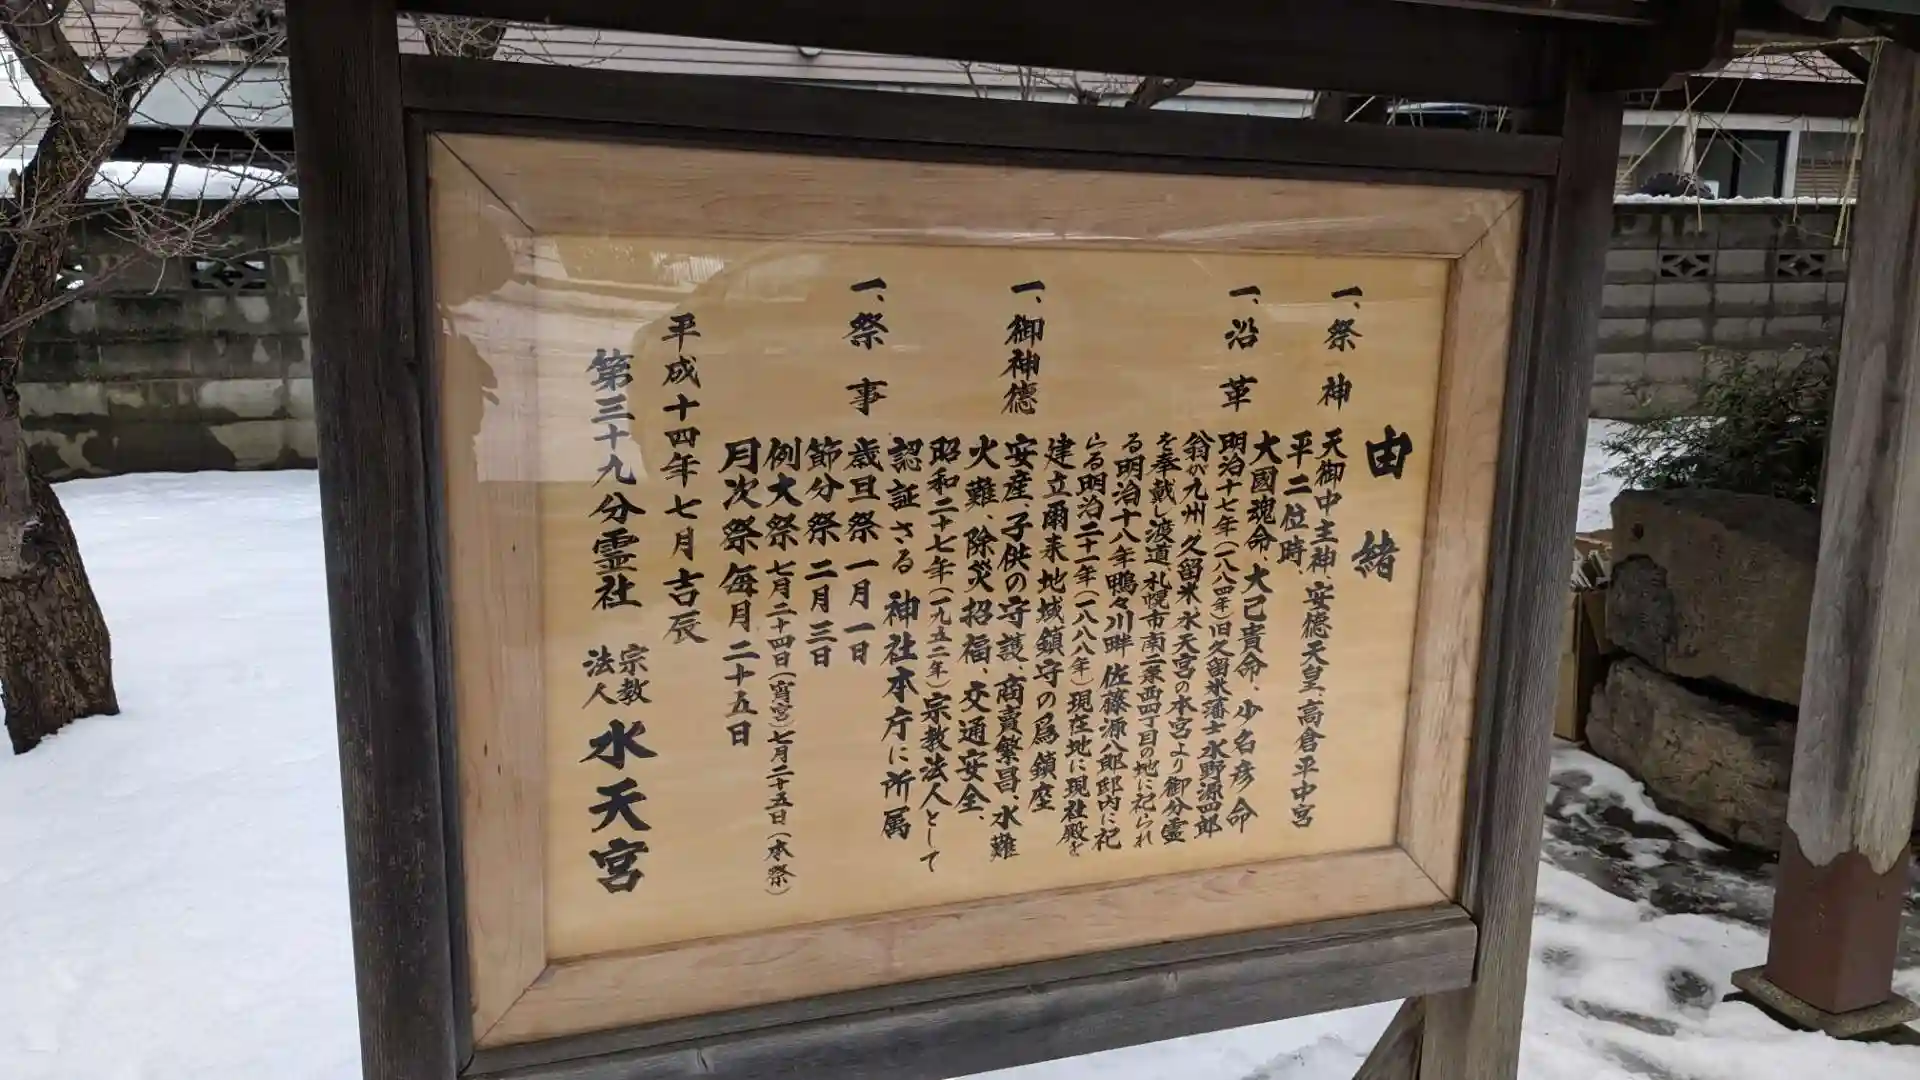 由緒
一、祭神
天御中主神、安徳天皇、高倉平中宮
平二位時
大國魂命、大己貴命、少名彦命
一、沿革
明治十七年(一八八四年)旧久留米藩士水野源四郎
翁が九州久留米、水天宮の本宮より御分霊
を奉戴し渡道札幌市南二条西四丁目の地に祀られ
る明治十八年鴨々川畔佐藤源八郎邸内に祀
らる明治二十一年(一八八八年)現在地に現社殿を
建立爾来地域鎮守の為鎮座
一、御神徳
安産、子供の守護、商賣繁昌、水難
火難除災招福、交通安全、
昭和二十七年(一九五二年)宗教法人として
認証さる神社本庁に所属
一、祭事
歳旦祭一月一日
節分祭二月三日
例大祭七月二十四日(宵宮)七月二十五日(本祭)
月次祭毎月二十五日
平成十四年七月吉辰
第三十九分霊社 宗教法人水天宮